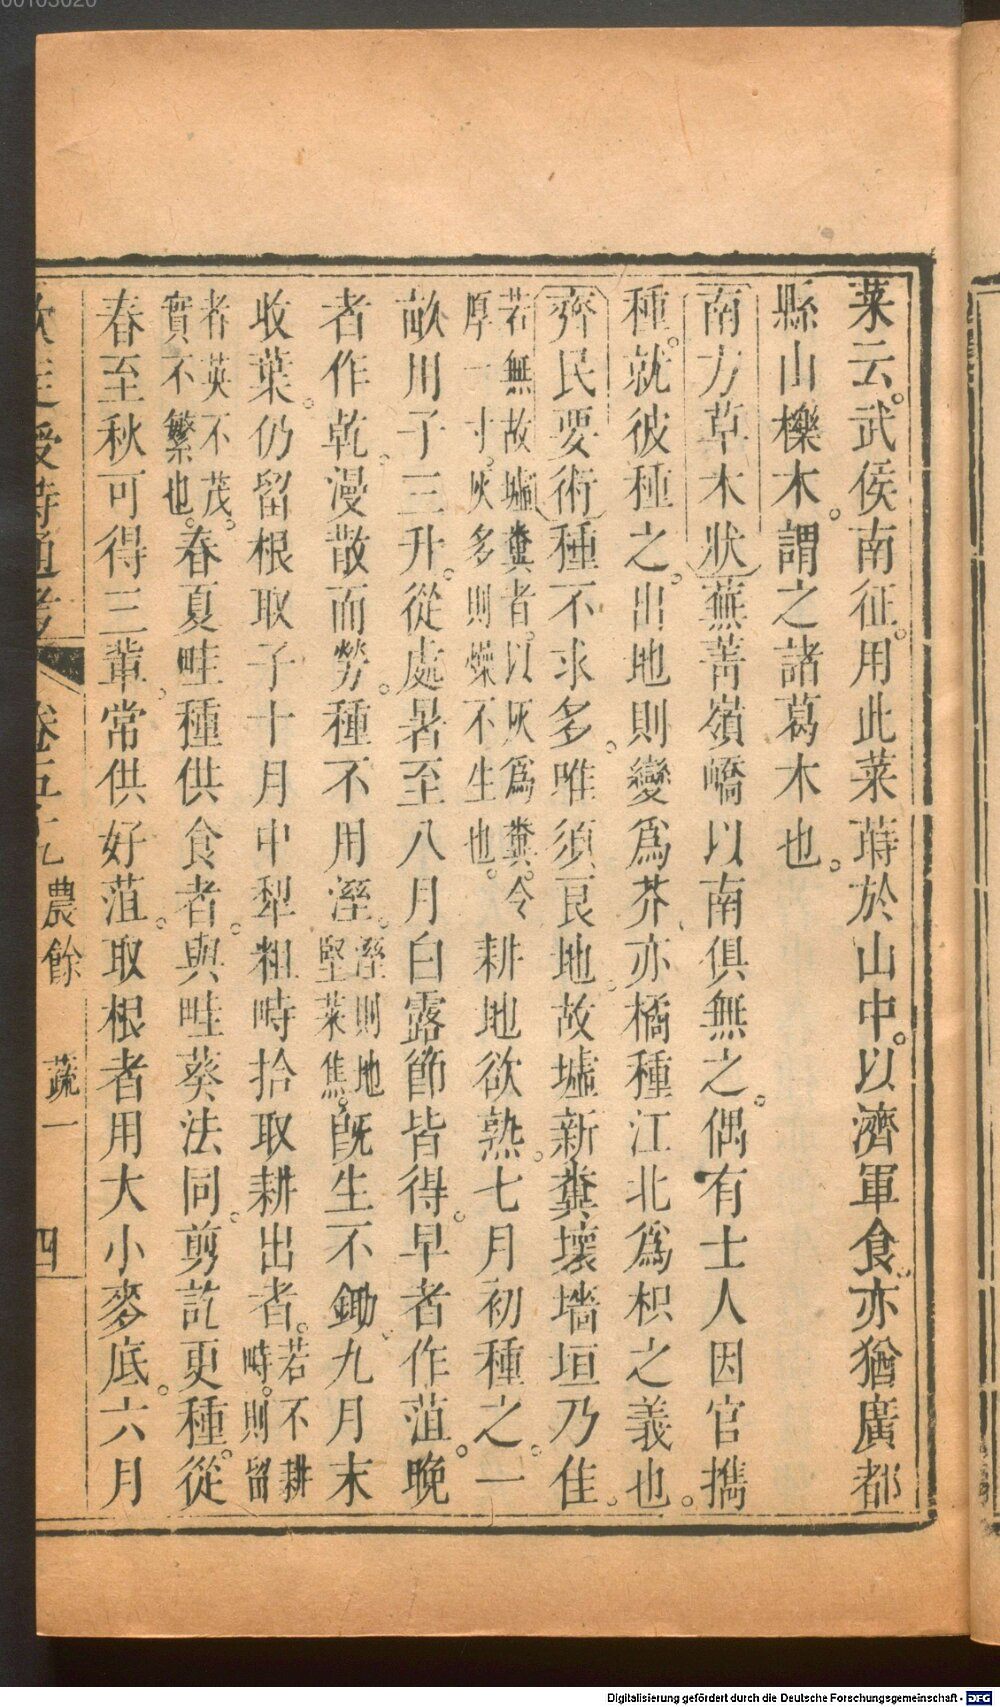 00103020
菜云。武侯南征。用此菜蒔於山中。以濟軍食。亦猶廣都
縣山櫟木。謂之諸葛木也。
南方草木狀蕪菁嶺嶠以南俱無之。偶有士人因官攜
種。就彼種之。出地則變爲芥、亦橘種江北爲枳之義也。
齊民要術種不求多。唯須良地。故墟新糞壞墻垣乃佳。
若無故墟糞者。以灰爲糞。令
厚一寸。灰多則燥不生也。
耕地欲熟。七月初種之。一
畝用子三升。從處暑至八月白露節皆得。早者作菹。晚
者作乾。漫散而勞。種不用溼。
溼則地
堅菜焦。
旣生不鋤。九月末
收葉。仍留根取子十月中犁粗畤拾取耕出者。
若不耕
畤。則留
者英不茂。
實不繁也。
春夏畦種供食者。與畦葵法同。剪訖更種。從
春至秋可得三輩。常供好菹。取根者用大小麥底。六月
欽定授時通考 卷五十九 農餘 蔬一 四
Digitalisierung gefördert durch die Deutsche Forschungsgemeinschaft - DFG